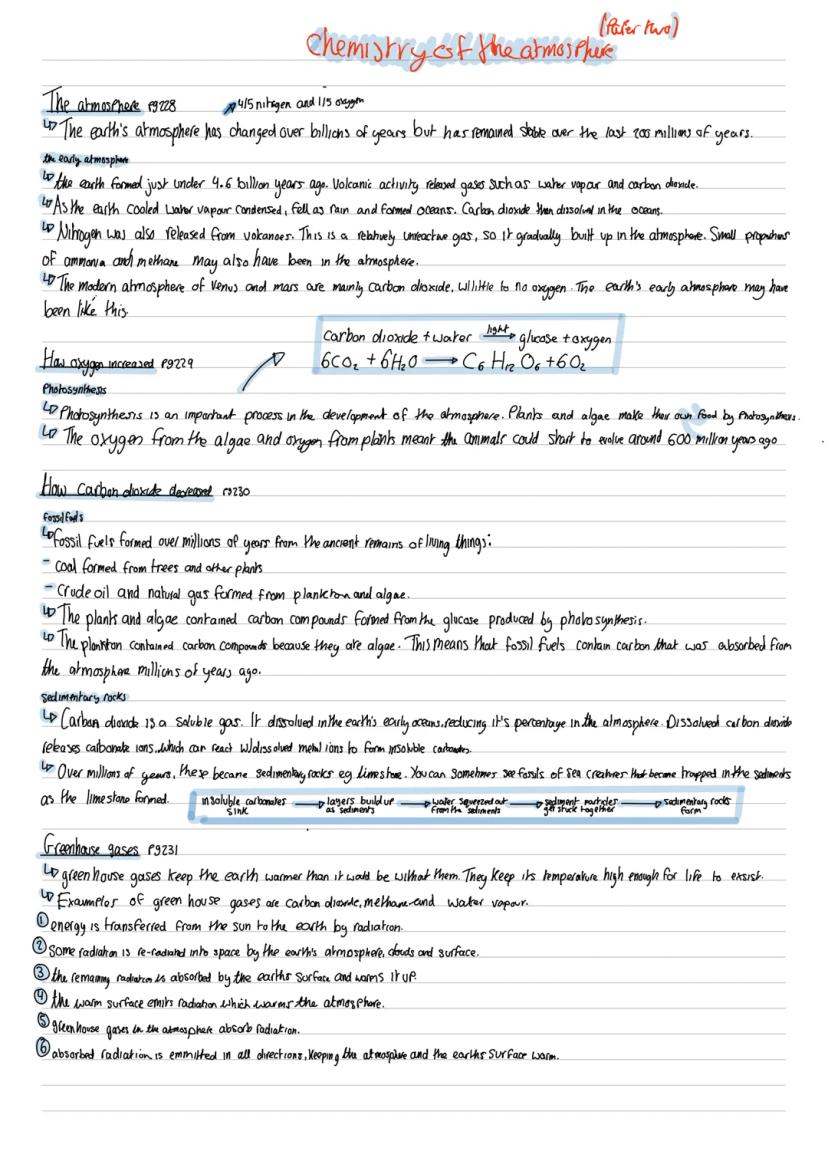 (Paper two)
Chemistry of the atmosphere
The atmosphere pg228
4/5 nitrogen and 1/5 oxygen
↳ The earth's atmosphere has changed over billions of years but has remained stable over the last 200 millions of years.
the early atmosphere
↳ the earth formed just under 4.6 billion years ago. Volcanic activity released gases such as water vapour and carbon dioxide.
↳ As the earth cooled water vapour condensed, fell as rain and formed oceans. Carbon dioxide then dissolved in the oceans.
↳ Nitrogen was also released from volcanoes. This is a relatively unreactive gas, so it gradually built up in the atmosphere. Small proportions
of ammonia and methane may also have been in the atmosphere.
↳ The modern atmosphere of Venus and mars are mainly carbon dioxide, w/little to no oxygen. The earth's early atmosphere may have
been like this.
carbon dioxide + water light → glucose + oxygen
6CO₂ + 6H₂O → C₆ H₁₂ O₆ + 6O₂
How oxygen increased pg229
Photosynthesis
↳ Photosynthesis is an important process in the development of the atmosphere. Plants and algae make their own food by Photosynthesis.
↳ The oxygen from the algae and oxygen from plants meant the animals could start to evolve around 600 million years ago
How Carbon dioxide decreased pg230
fossil fuels
↳ Fossil fuels formed over millions of years from the ancient remains of living things:
- coal formed from trees and other plants
- Crude oil and natural gas formed from plankton and algae.
↳ The plants and algae contained carbon compounds formed from the glucose produced by photosynthesis.
↳ The plankton contained carbon compounds because they are algae. This means that fossil fuels contain carbon that was absorbed from
the atmosphere millions of years ago.
Sedimentary rocks
↳ Carbon dioxide is a soluble gas. It dissolved in the earth's early oceans, reducing it's percentage in the atmosphere. Dissolved carbon dioxide
releases carbonate ions, which can react w/dissolved metal ions to form insoluble carbonates.
↳ Over millions of years, these became sedimentary rocks eg limestone. You can sometimes see fossils of sea creatures that became trapped in the sediments
as the limestone formed.
insoluble carbonates sink → layers build up as sediments → water squeezed out from the sediments → sediment particles get stuck together → sedimentary rocks form
Greenhouse gases pg231
↳ greenhouse gases keep the earth warmer than it would be without them. They keep its temperature high enough for life to exsist.
↳ Exaumples of green house gases are carbon dioxide, methane and water vapour.
① energy is transferred from the sun to the earth by radiation.
② Some radiation is re-radiated into space by the earth's atmosphere, clouds and surface.
③ the remaining radiation is absorbed by the earths surface and warms it up.
④ the warm surface emits radiation which warms the atmosphere.
⑤ greenhouse gases in the atmosphere absorb radiation.
⑥ absorbed radiation is emmitted in all directions, keeping the atmosphere and the earths surface warm.